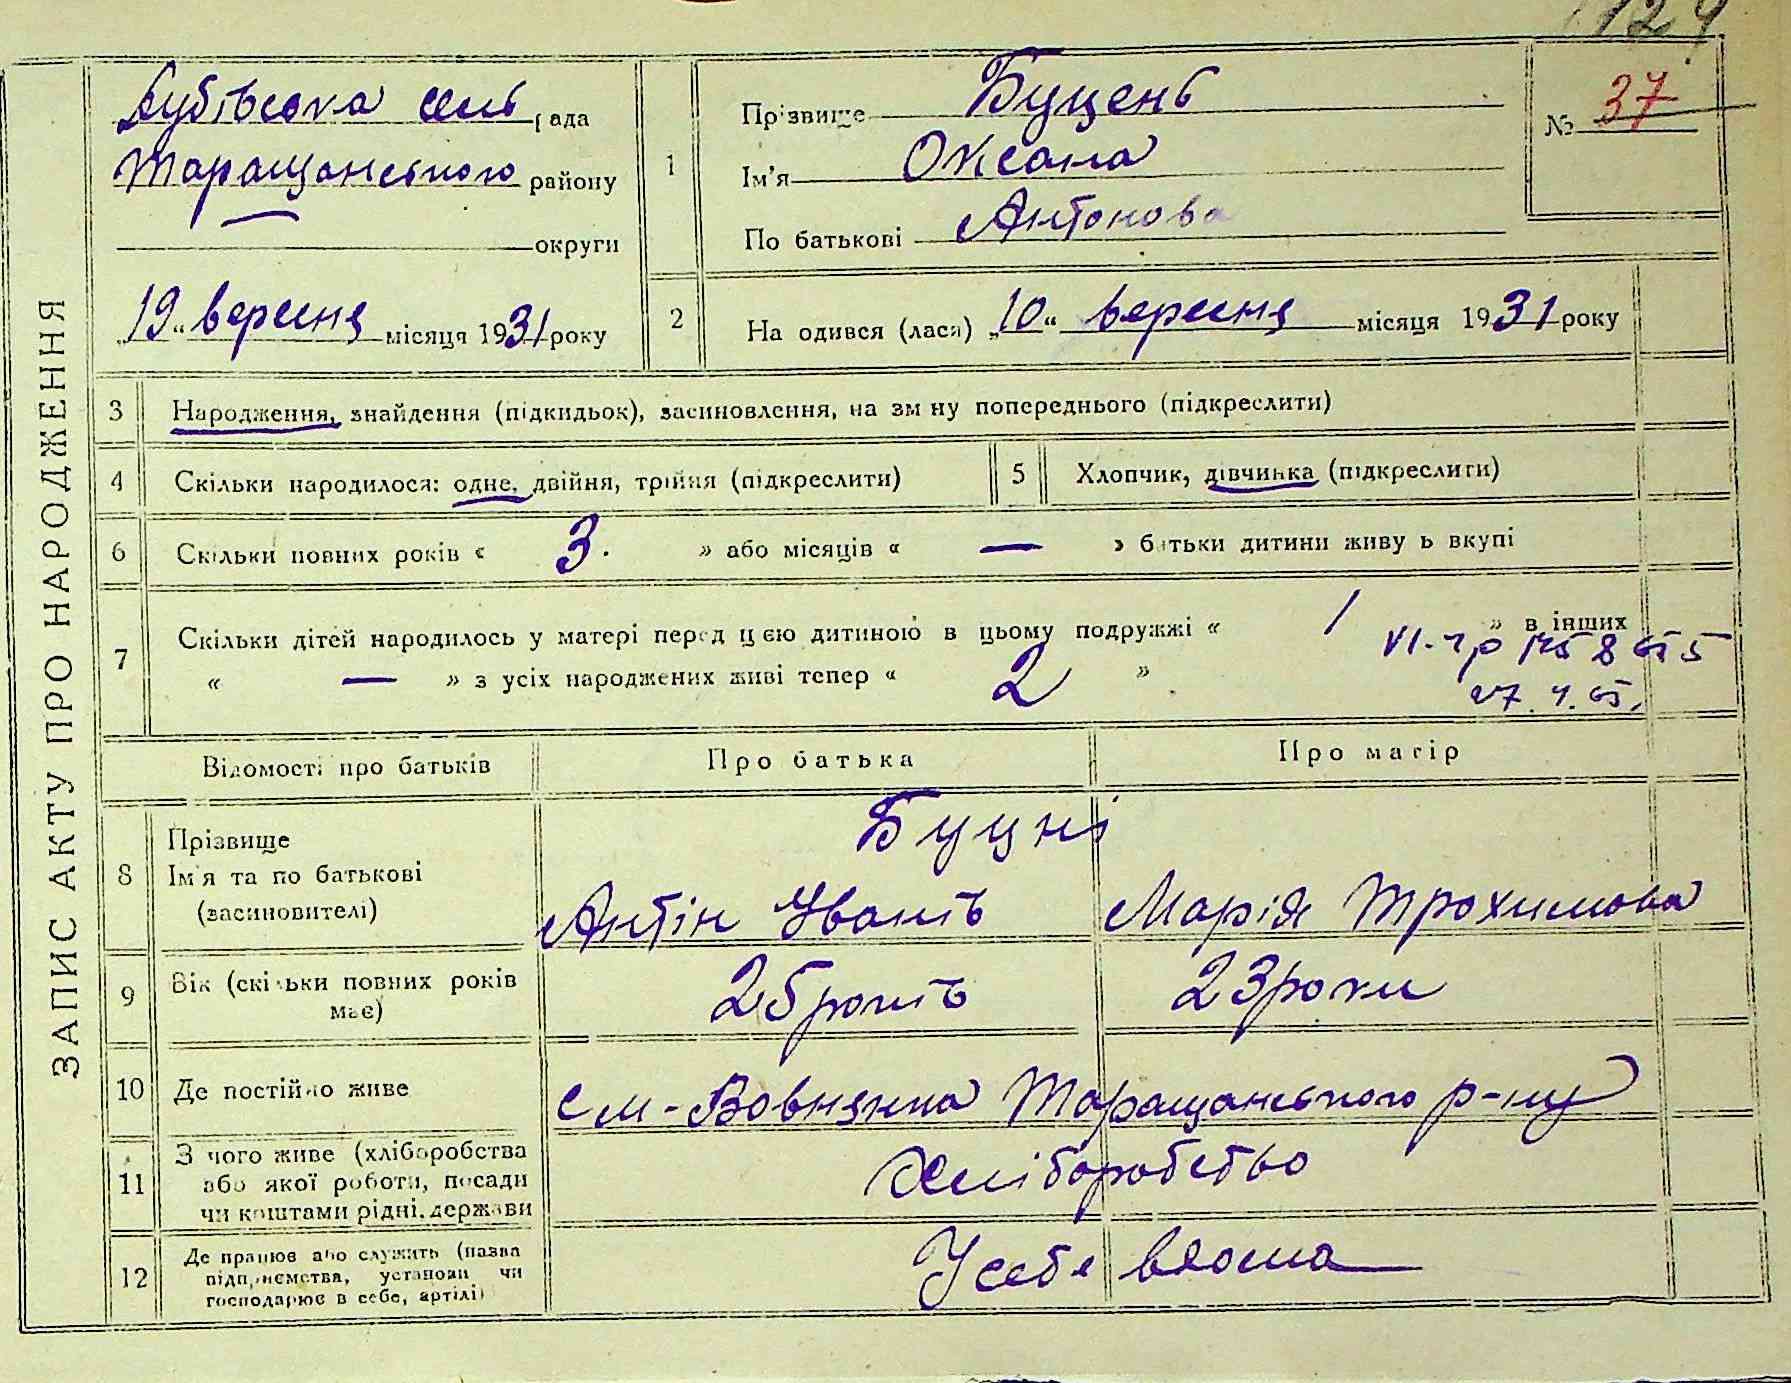 124
ЗАПИС АКТУ ПРО НАРОДЖЕННЯ
Дубівська сель рада
Таращанського району
округи
„19“ вересня місяця 1931 року
1
Прізвище Буцень
Ім'я Оксана
По батькові Антонова
№ 37
2
На одився (лася) „10“ вересня місяця 1931 року
3 Народження, знайдення (підкидьок), засиновлення, на зм ну попереднього (підкреслити)
4 Скільки народилося: одне, двійня, трійня (підкреслити)
5 Хлопчик, дівчинка (підкреслити)
6 Скільки повних років « 3. » або місяців « — » батьки дитини живу ь вкупі
7 Скільки дітей народилось у матері перед цією дитиною в цьому подружжі « 1 » в інших
« — » з усіх народжених живі тепер « 2 »
Відомості про батьків Про батька Про матір
8 Прізвище
Ім'я та по батькові
(засиновителі)
Буцні
Антін Іванів Марія Трохимова
9 Вік (скільки повних років
має)
25 років 23 роки
10 Де постійно живе
с м-Вовнянка Таращанського р-ну
11 З чого живе (хліборобства
або якої роботи, посади
чи коштами рідні, держави
Хліборобство
12 Де працює або служить (назва
підприємства, установи чи
господарює в себе, артілі)
У себе вдома